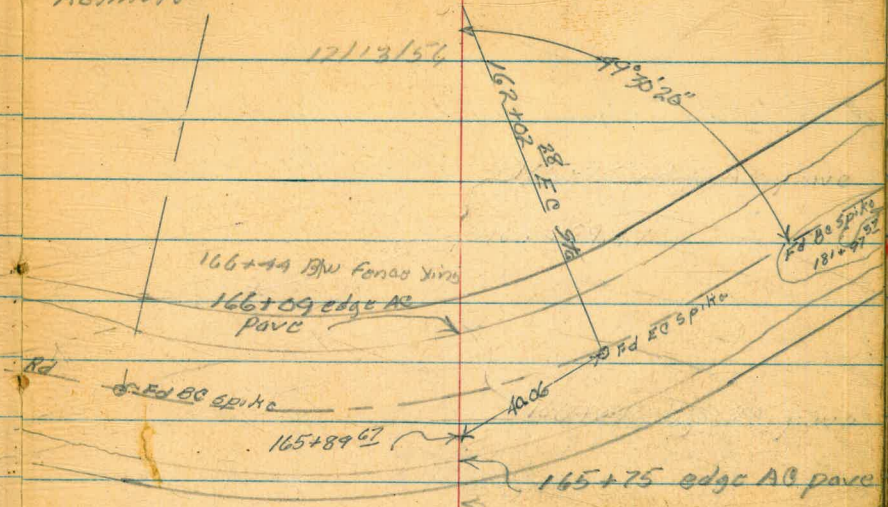 12/13/56
49°30'20"
162+02 28 EC Sta
Fd BC Spike
181+97 57
166+44 B/W Fence Xing
166+09 edge AC
Pave
Fd EC Spike
Rd
Fd BC Spike
40.06
165+89 67
165+75 edge AC pave